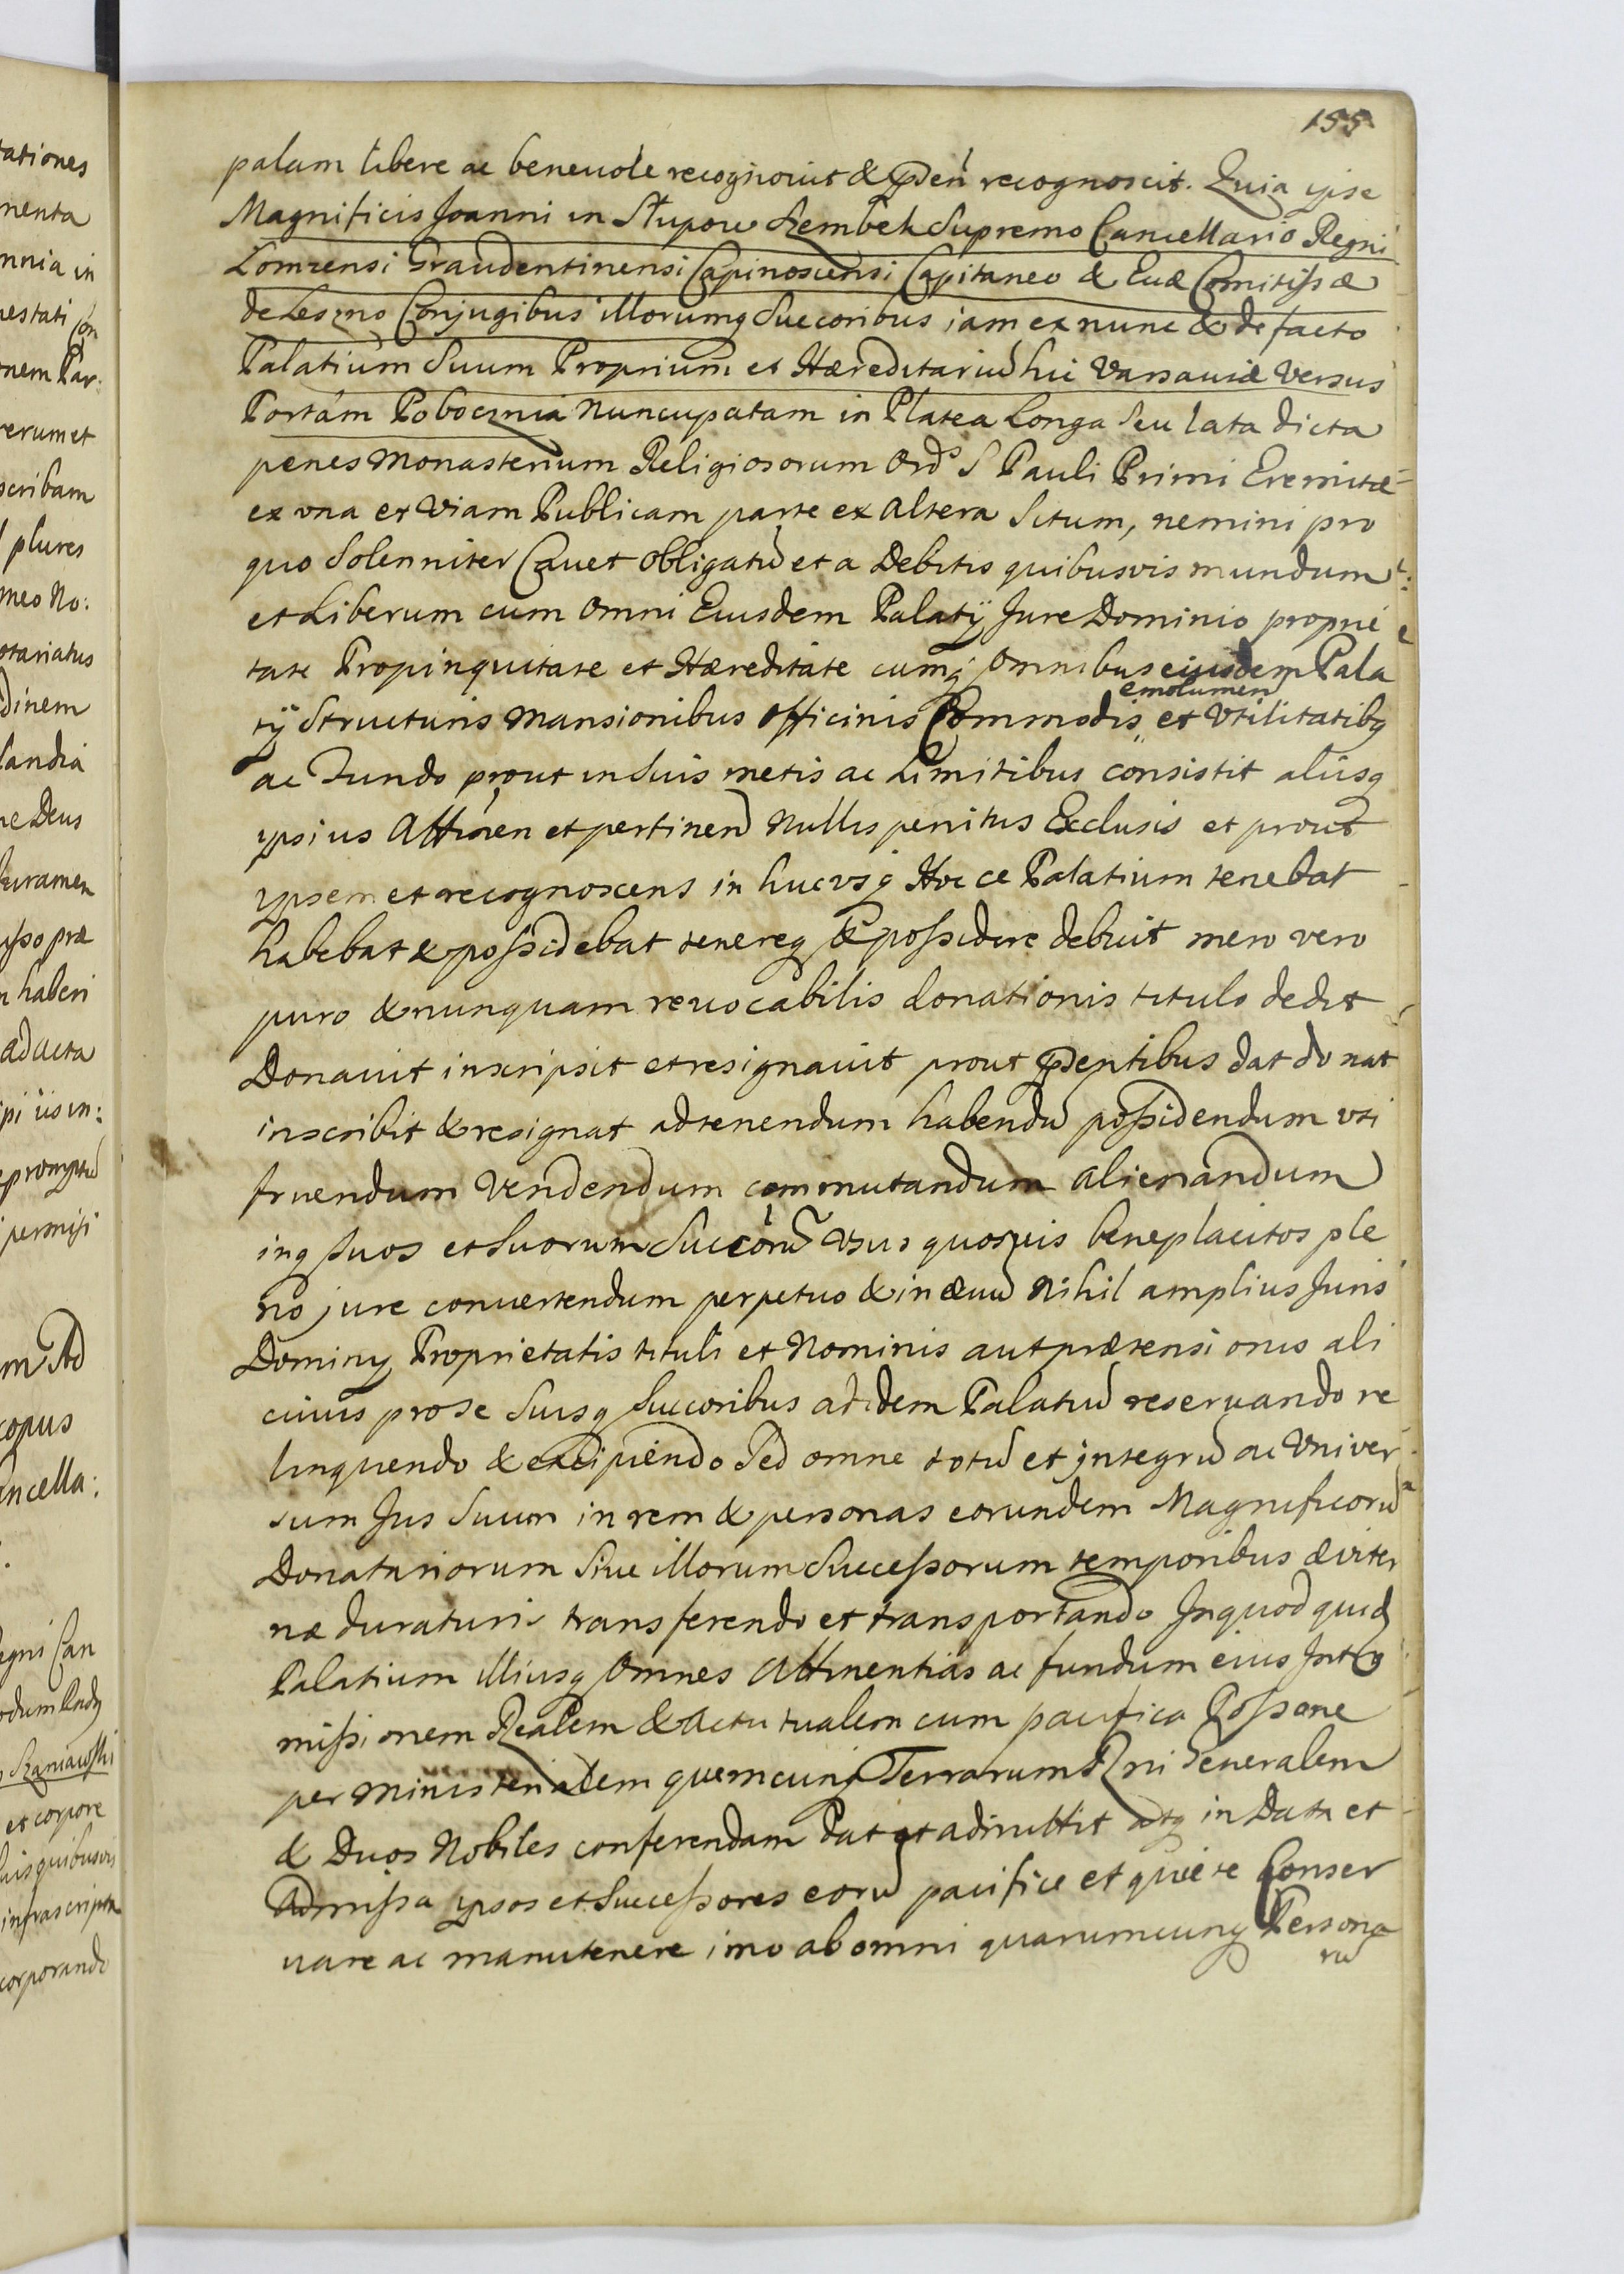 155
palam libere ac beneuole recognouit & pñtiu recognoscit. Quia ipse
Magnificis Joanni in Słupow Szembek Supremo Cancellario Regni
Lomzensi Graudentinensi Capinoscensi Capitaneo & Euæ Comitissæ
de Leszno Conjugibus illorumq Succoribus iam ex nunc & de facto
Palatium Suum Proprium et Hæreditariu hic Varsauiæ versus
Portam Pobocznia nuncupatam in Platea Longa Seu lata dicta
penes Monasterium Religiosorum Ord^s S Pauli Primi Eremitæ
ex vna et Viam Publicam parte ex altera Situm, nemini pro
quo Solenniter Cauet obligatu et a Debitis quibusvis mundum
et Liberum cum Omni Eiusdem Palatij Jure Dominio proprie
tate Propinquitate et Hæreditate cumq Omnibus eiusdem Pala
emolumen
tij Structuris Mansionibus officinis Commodis et Vtilitatibq
ac Fundo prout in Suis metis ac Limitibus consistit aliisq
ipsius Attinen et pertinen Nullis penitus Exclusis et prout
ipsemet recognoscens in hucvsq Hocce Palatium tenebat
habebat & possidebat tenereq & possidere debuit mero vero
puro & nunquam reuocabilis donationis titulo dedit
Donauit inscripsit et resignauit prout pñsentibus dat donat
inscribit & resignat ad tenendum habendu possidendum vti
fruendum Vendendum commutandum alienandum
inq suos et Suorum Succoru Vsus quosuis beneplacitos ple
no jure conuertendum perpetuo & in æuu Nihil amplius Juris
Dominij Proprietatis tituli et Nominis aut prætensionis ali
cuius pro se Suisq Succoribus ad idem Palatiu reseruando re
linquendo & excipiendo Sed omne totu et integru ac Vniver
sum Jus Suum in rem & personas eorundem Magnificoru
Donatariorum Siue illorum Successorum temporibus æviter
næ duraturis transferendo et transportando In quod quid
Palatium illiusq Omnes Attinentias ac fundum eius Intro
missionem Realem & Actutualem cum pacifica Possone
per Ministerialem quemcunq Terrarum Rni Generalem
& Duos Nobiles conferendam Dat et admittit atq in Data et
Admissa ipsos et Successores eoru pacifice et quiete Conser
uare ac manutenere imo ab omni quarumcunq Persona
ru